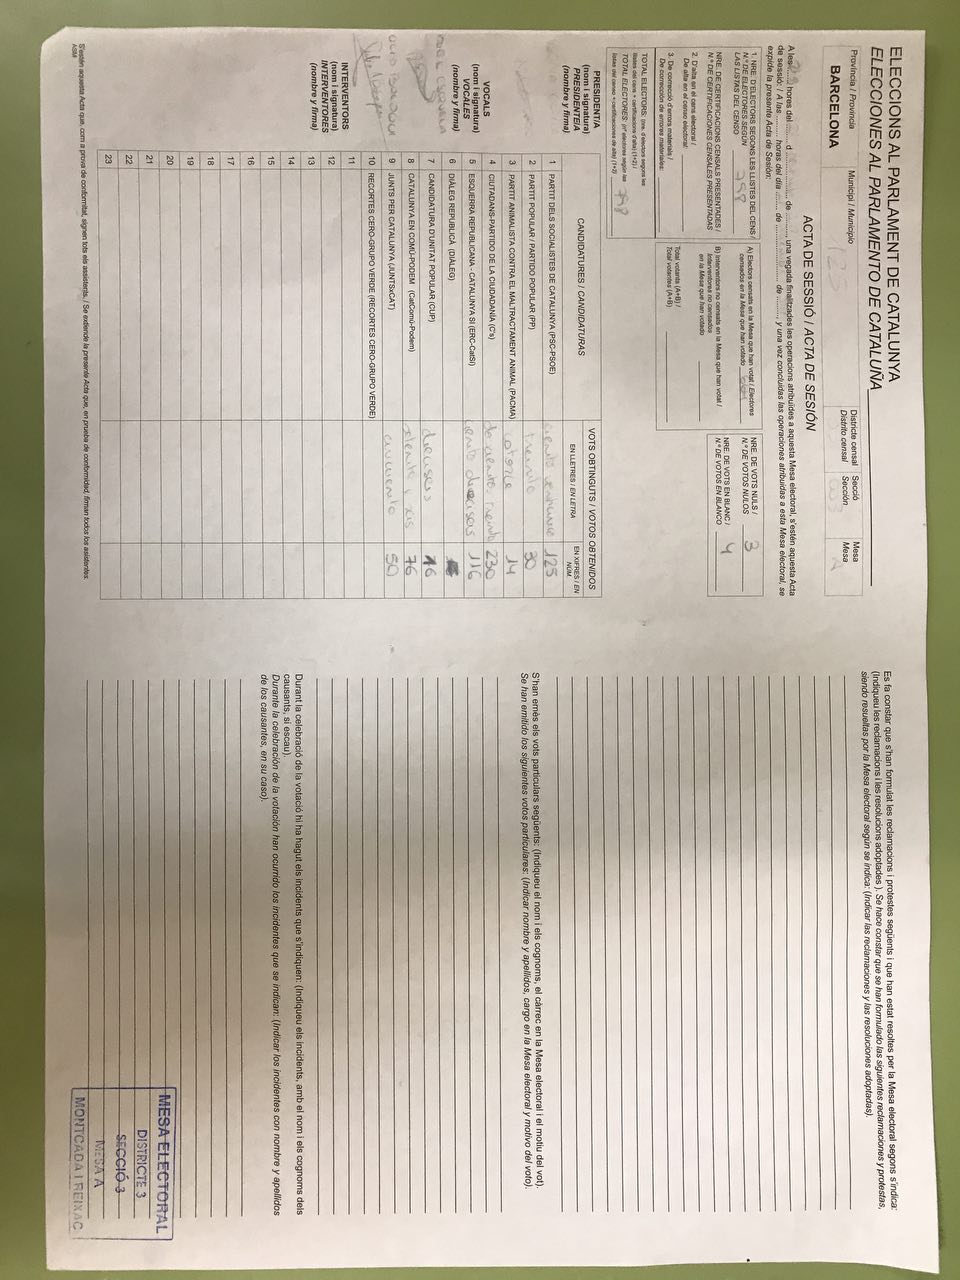 ELECCIONS AL PARLAMENT DE CATALUNYA
ELECCIONES AL PARLAMENTO DE CATALUÑA
Província / Provincia
BARCELONA
Municipi / Municipio
Districte censal
Distrito censal
Secció
Sección
Mesa
Mesa
A
ACTA DE SESSIÓ / ACTA DE SESIÓN
A les ........ hores del ........ d ........ de ........, una vegada finalitzades les operacions atribuïdes a aquesta Mesa electoral, s'estén aquesta Acta
de sessió: / A las ........ horas del día ........ de ........ de ........, y una vez concluidas las operaciones atribuidas a esta Mesa electoral, se
expide la presente Acta de Sesión:
1. NRE. D'ELECTORS SEGONS LES LLISTES DEL CENS /
N.º DE ELECTORES SEGÚN
LAS LISTAS DEL CENSO 798
NRE. DE CERTIFICACIONS CENSALS PRESENTADES /
N.º DE CERTIFICACIONES CENSALES PRESENTADAS
2. D'alta en el cens electoral /
De alta en el censo electoral:
3. De correcció d'errors materials /
De corrección de errores materiales:
TOTAL ELECTORS: (nre. d'electors segons les
llistes del cens + certificacions d'alta) (1+2) /
TOTAL ELECTORES: (nº electores según las
listas del censo +certificaciones de alta) (1+2) 798
A) Electors censats en la Mesa que han votat / Electores
censados en la Mesa que han votado
B) Interventors no censats en la Mesa que han votat /
Interventores no censados
en la Mesa que han votado
Total votants (A+B) /
Total votantes (A+B)
NRE. DE VOTS NULS /
N.º DE VOTOS NULOS 3
NRE. DE VOTS EN BLANC /
N.º DE VOTOS EN BLANCO 4
PRESIDENT/A
(nom i signatura)
PRESIDENTE/A
(nombre y firma)
VOCALS
(nom i signatura)
VOCALES
(nombre y firma)
INTERVENTORS
(nom i signatura)
INTERVENTORES
(nombre y firma)
CANDIDATURES / CANDIDATURAS
VOTS OBTINGUTS / VOTOS OBTENIDOS
EN LLETRES / EN LETRA
EN XIFRES / EN NÚM.
1 PARTIT DELS SOCIALISTES DE CATALUNYA (PSC-PSOE) 125
2 PARTIT POPULAR / PARTIDO POPULAR (PP) treinta 30
3 PARTIT ANIMALISTA CONTRA EL MALTRACTAMENT ANIMAL (PACMA) catorce 14
4 CIUTADANS-PARTIDO DE LA CIUDADANÍA (C's) 230
5 ESQUERRA REPUBLICANA - CATALUNYA SÍ (ERC-CatSí) 116
6 DIÀLEG REPUBLICÀ (DIÀLEG)
7 CANDIDATURA D'UNITAT POPULAR (CUP) dieciseis 16
8 CATALUNYA EN COMÚ-PODEM (CatComú-Podem) 76
9 JUNTS PER CATALUNYA (JUNTSxCAT) cincuenta 50
10 RECORTES CERO-GRUPO VERDE (RECORTES CERO-GRUPO VERDE)
11
12
13
14
15
16
16
17
18
19
20
21
22
23
S'estén aquesta Acta que, com a prova de conformitat, signen tots els assistents. / Se extiende la presente Acta que, en prueba de conformidad, firman todos los asistentes.
Es fa constar que s'han formulat les reclamacions i protestes següents i que han estat resoltes per la Mesa electoral segons s'indica:
(Indiqueu les reclamacions i les resolucions adoptades). Se hace constar que se han formulado las siguientes reclamaciones y protestas,
siendo resueltas por la Mesa electoral según se indica: (Indicar las reclamaciones y las resoluciones adoptadas)
S'han emès els vots particulars següents: (Indiqueu el nom i els cognoms, el càrrec en la Mesa electoral i el motiu del vot).
Se han emitido los siguientes votos particulares: (Indicar nombre y apellidos, cargo en la Mesa electoral y motivo del voto).
Durant la celebració de la votació hi ha hagut els incidents que s'indiquen: (Indiqueu els incidents, amb el nom i els cognoms dels
causants, si escau).
Durante la celebración de la votación han ocurrido los incidentes que se indican: (Indicar los incidentes con nombre y apellidos
de los causantes, en su caso).
MESA ELECTORAL
DISTRICTE 3
SECCIÓ 3
MESA A
MONTCADA I REIXAC